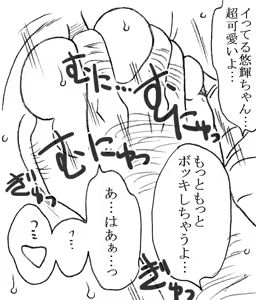 イってる悠輝ちゃん…
超可愛いよ…
むにゅっ
むに…
むにゅっ
もっともっと
ボッキしちゃうよ…
ぎゅっ
あ…はあぁ…っ
っ…
ぎゅっ